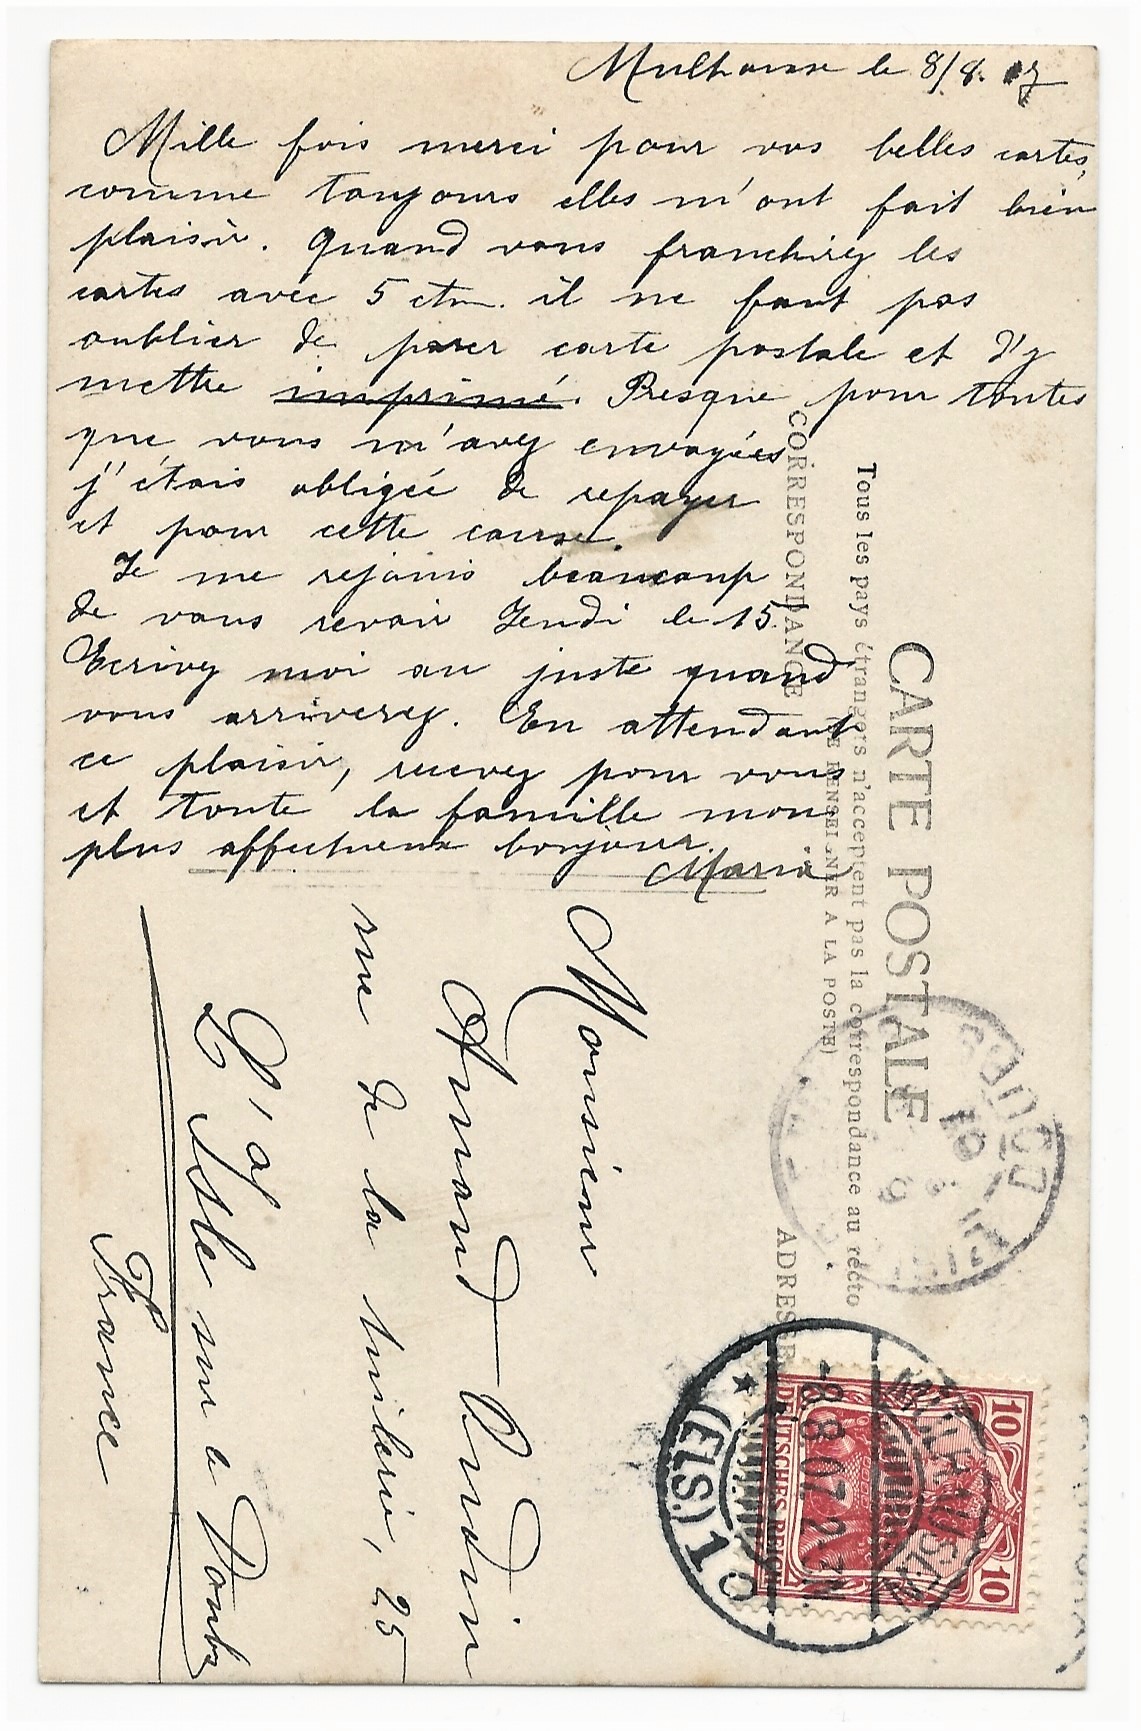 Mulhouse le 8/8. 07
Mille fois merci pour vos belles cartes,
comme toujours elles m'ont fait bien
plaisir. Quand vous franchirez les
cartes avec 5 ctm. il ne faut pas
oublier de parer carte postale et d'y
mettre imprimé. Presque pour toutes
que vous m'avez envoyées
j'étais obligée de repayer
et pour cette cause.
Je me rejouis beaucoup
de vous revoir Jeudi le 15.
Ecrivez moi au juste quand
vous arriverez. En attendant
ce plaisir, recevez pour vous
et toute la famille mon
plus affectueux bonjour.
Maria
CARTE POSTALE
Tous les pays étrangers n'acceptent pas la correspondance au recto
SE RENSEIGNER A LA POSTE)
CORRESPONDANCE
ADRESSE
Monsieur
Armand
rue de la tuilerie, 25
L'
Isle sur e Doubs
France
10 10
DEUTSCHES REICH
MÜLHAUSEN
-8.8.07.2-3N.
* C1
(ELS.)
DOUBS